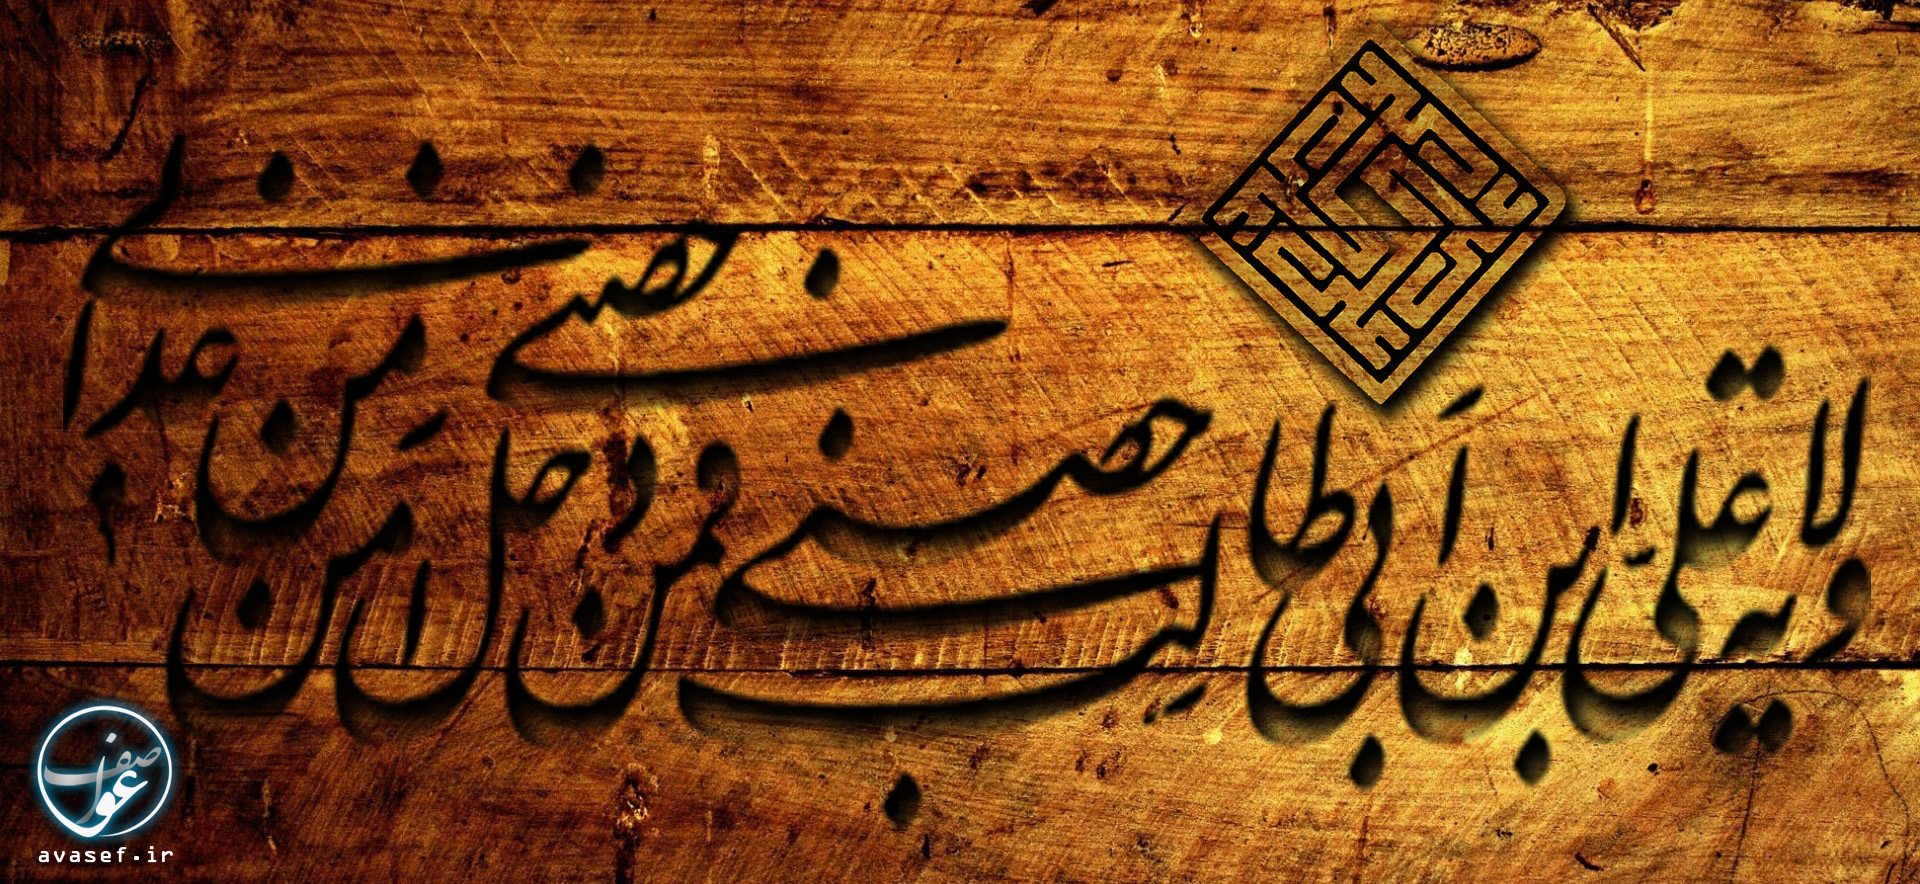 ولایة علیّ ابن ابی طالب حصنی فمن دخل حصنی امن من عذابی
عواصف
avasef.ir